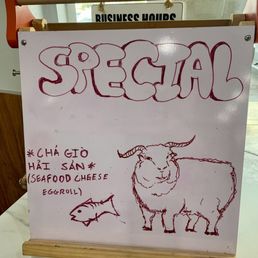 BUSINESS HOURS
SPECIAL
*CHẢ GIÒ
HẢI SẢN*
(SEAFOOD CHEESE
EGGROLL)